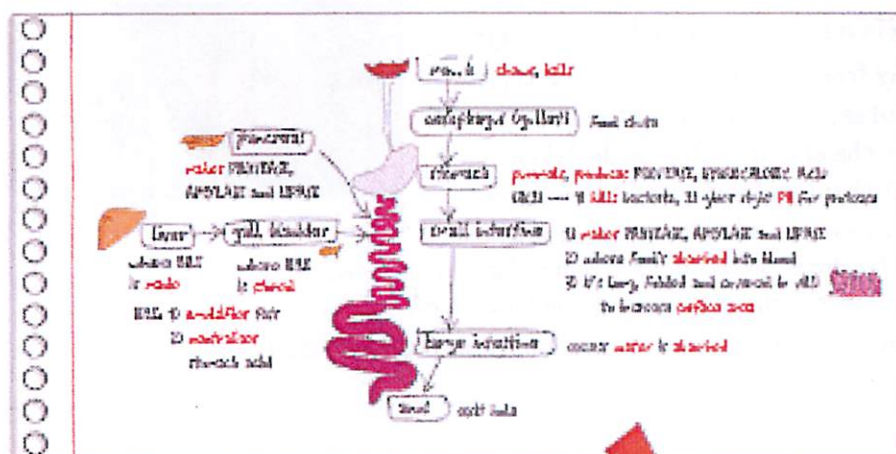 chews,
oesophagus (gullet) food chute
pancreas
makes PROTEASE,
AMYLASE and LIPASE
stomach pummels, produces PROTEASE, HYDROCHLORIC Acid
kills bacteria, 2) gives right PH for protease
liver gall bladder
where BILE is made
where BILE is stored
BILE 1) emulsifies fats
2) neutralises
stomach acid
small intestine 1) makes PROTEASE, AMYLASE and LIPASE
2) where food's absorbed into blood
3) it's long, folded and covered in villi
to increase surface area
large intestine excess water is absorbed
exit hole